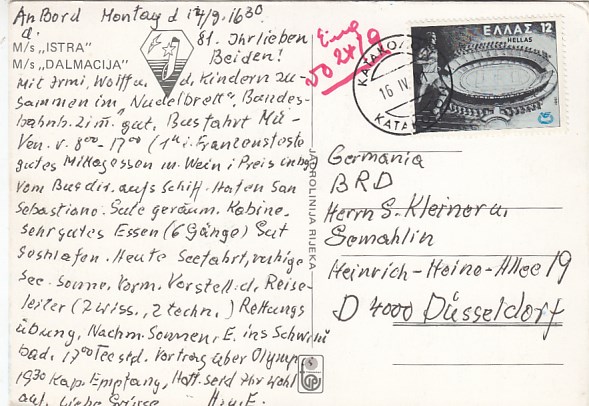 An Bord Montag d 14/9. 1630
d.
M/s „ISTRA"
M/s „DALMACIJA"
81. Ihr lieben
Beiden!
Mit Irmi, Wolff u. d. Kindern zu-
sammen im „Nudelbrett", Bundes-
bahnh. Zim. gut. Busfahrt Mü-
Ven. v. 800 - 1700 (1 i. Franzensfeste
gutes Mittagessen m. Wein i Preis
vom Bus dir. aufs Schiff. Hafen San
Sebastiano. Gute geräum. Kabine.
sehr gutes Essen (6 Gänge) Gut
geschlafen. Heute Seefahrt, ruhige
See. Sonne. Vorm. Vorstell. d. Reise-
leiter (2 wiss., 2 techn.) Rettungs
übung. Nachm. Sonnen, E. ins Schwim
bad. 1700 Tee std. Vortrag über Olymp
1930 Kap. Empfang, Hoff. seid Ihr wohl
auf. Liebe Grüsse H. u. E.
JADROLINIJA RIJEKA
Eing
24/9
ΕΛΛΑΣ 12
HELLAS
16 IV
ΚΑΤΑΚΟ
KATAK
Germania
BRD
Herrn S. Kleiner u.
Gemahlin
Heinrich-Heine-Allee 19
D 4000 Düsseldorf